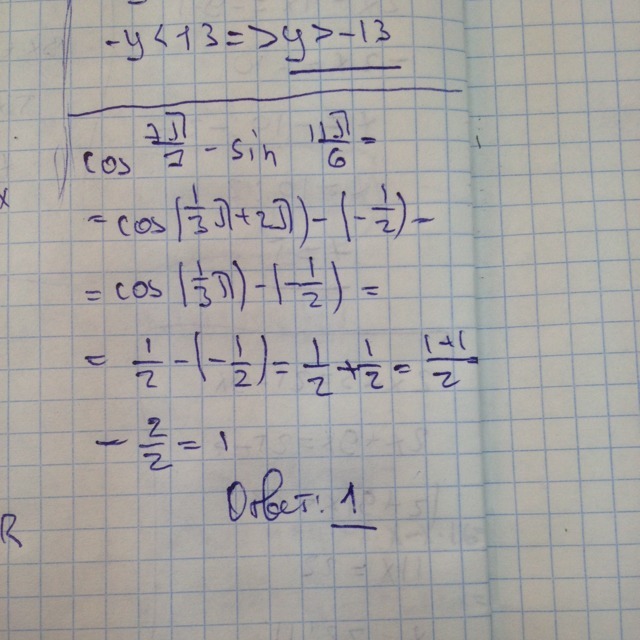 -y < 13 => y > -13
cos 7π/7 - sin 11π/6 =
= cos (1/3 π + 2π) - (-1/2) -
= cos (1/3 π) - (-1/2) =
= 1/2 - (-1/2) = 1/2 + 1/2 = 1+1/2
- 2/2 = 1
Ответ: 1
R